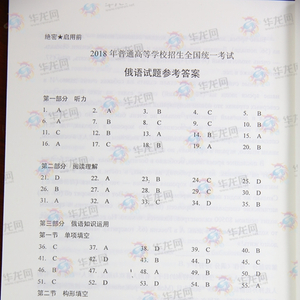 绝密★启用前
2018年普通高等学校招生全国统一考试
俄语试题参考答案
第一部分 听力
1. A 2. A 3. B 4. C 5. B
6. A 7. B 8. C 9. C 10. B
11. C 12. A 13. B 14. A 15. A
16. A 17. C 18. B 19. C 20. A
第二部分 阅读理解
21. D 22. A 23. B 24. C 25. D
26. B 27. A 28. B 29. C 30. D
31. A 32. A 33. D 34. B 35. D
第三部分 俄语知识运用
第一节 单项填空
36. C 37. A 38. D 39. C 40. B
41. C 42. D 43. D 44. A 45. C
46. B 47. A 48. D 49. B 50. B
51. C 52. D 53. A 54. B 55. A
第二节 构形填空
华龙网